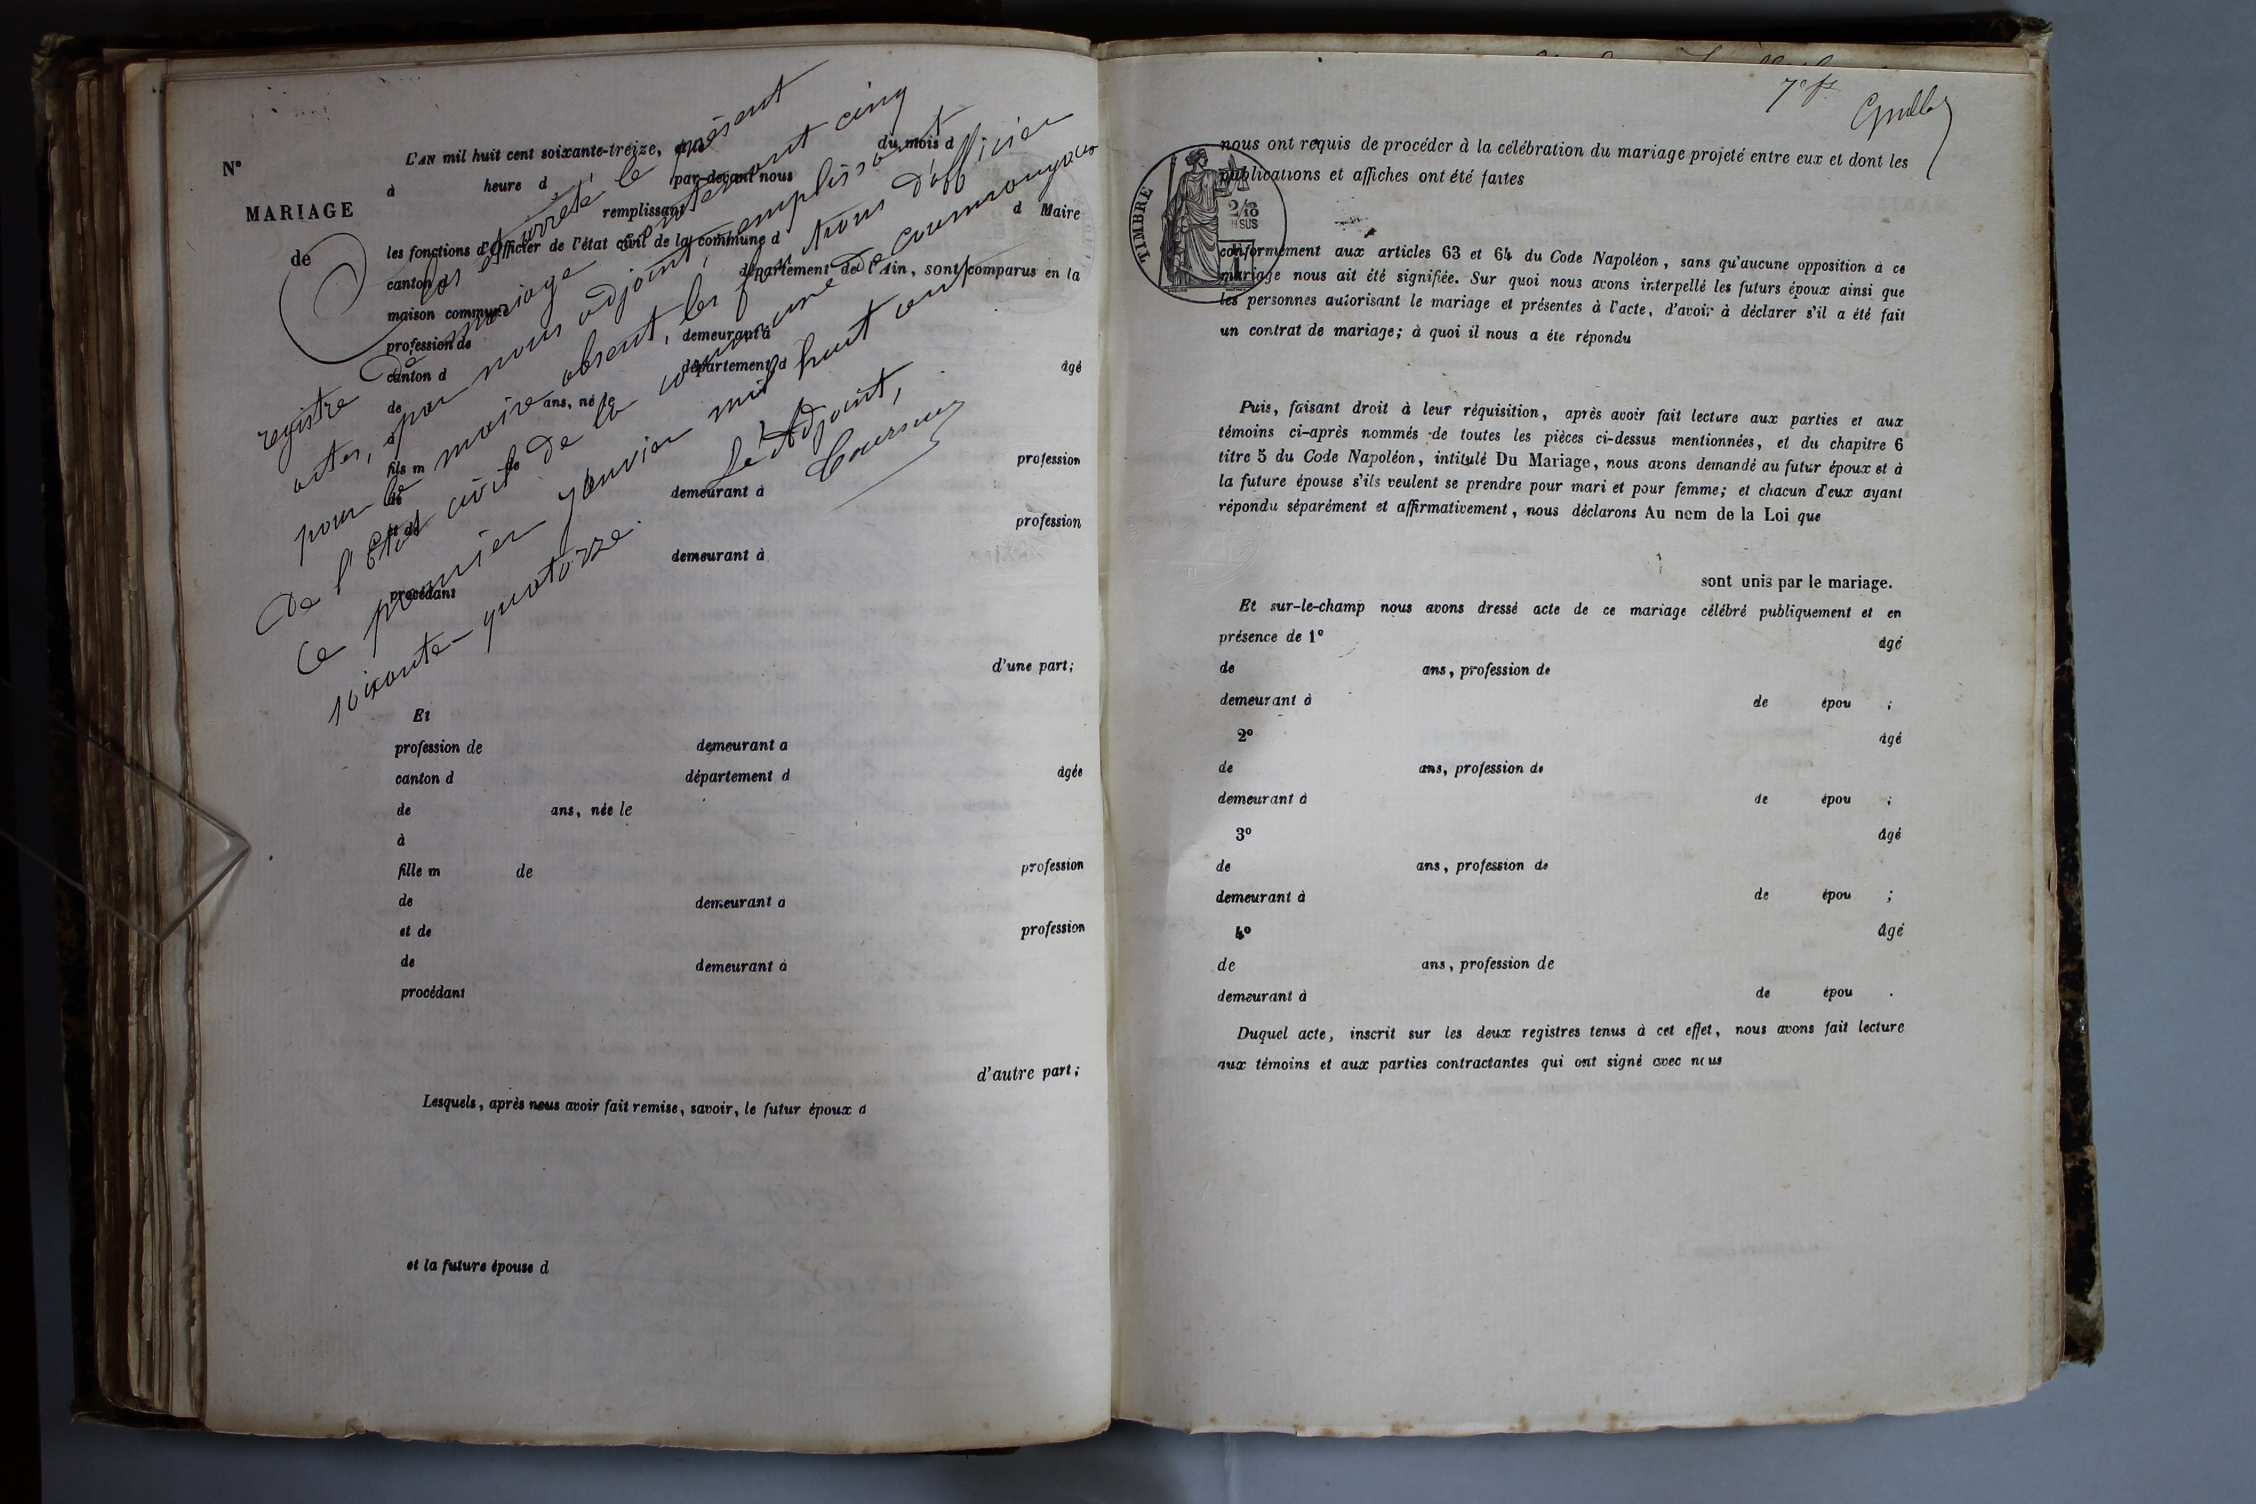 N°
MARIAGE
de
L'AN mil huit cent soixante-treize, du mois d
à heure d par-devant nous
remplissant d Maire
les fonctions d'Officier de l'état civil de la commune d
canton d département de l'Ain, sont comparus en la
maison commune
profession de demeurant à
canton d département d âgé
de ans, né le
à
fils m de profession
de demeurant à
et de profession
demeurant à
procédant
d'une part;
Clos et arrêté le présent
registre de mariage contenant cinq
actes, par nous adjoint, remplissant
pour le maire absent, les fonctions d'officier
de l'Etat civil de la commune de
Ce premier janvier mil huit cent
soixante-quatorze.
Le Adjoint,
Et
profession de demeurant à
canton d département d âgée
de ans, née le
à
fille m de profession
de demeurant à
et de profession
de demeurant à
procédant
d'autre part;
Lesquels, après nous avoir fait remise, savoir, le futur époux d
et la future épouse d
nous ont requis de procéder à la célébration du mariage projeté entre eux et dont les
publications et affiches ont été faites
TIMBRE
2/10
EN SUS
conformément aux articles 63 et 64 du Code Napoléon, sans qu'aucune opposition à ce
mariage nous ait été signifiée. Sur quoi nous avons interpellé les futurs époux ainsi que
les personnes autorisant le mariage et présentes à l'acte, d'avoir à déclarer s'il a été fait
un contrat de mariage; à quoi il nous a été répondu
Puis, faisant droit à leur réquisition, après avoir fait lecture aux parties et aux
témoins ci-après nommés de toutes les pièces ci-dessus mentionnées, et du chapitre 6
titre 5 du Code Napoléon, intitulé Du Mariage, nous avons demandé au futur époux et à
la future épouse s'ils veulent se prendre pour mari et pour femme; et chacun d'eux ayant
répondu séparément et affirmativement, nous déclarons Au nom de la Loi que
sont unis par le mariage.
Et sur-le-champ nous avons dressé acte de ce mariage célébré publiquement et en
présence de 1° âgé
de ans, profession de
demeurant à de épou ;
2° âgé
de ans, profession de
demeurant à de épou ;
3° âgé
de ans, profession de
demeurant à de épou ;
4° âgé
de ans, profession de
demeurant à de épou .
Duquel acte, inscrit sur les deux registres tenus à cet effet, nous avons fait lecture
aux témoins et aux parties contractantes qui ont signé avec nous